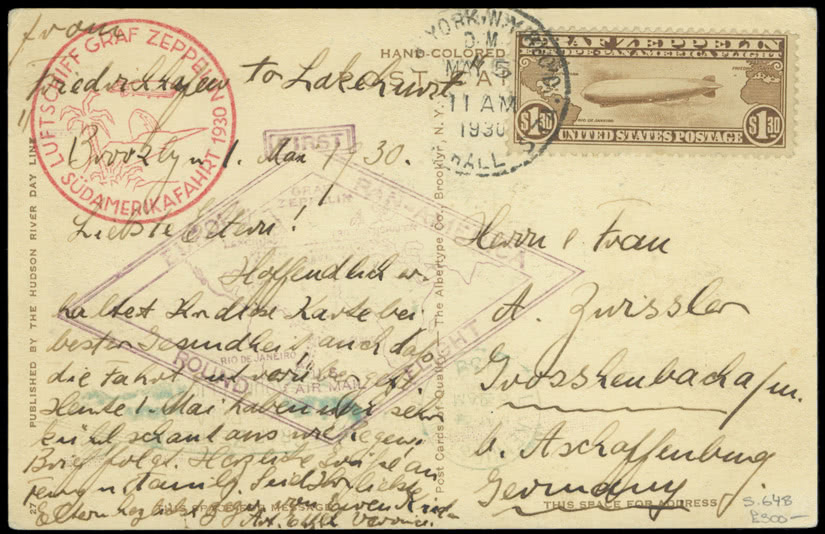 from
Friedrichhafen to Lakehurst
Brooklyn 1. Mai 30.
Liebste Eltern!
Hoffendlich er-
haltet Ihr diese Karte bei
bester Gesundheit auch daß
die Fahrt gut
Heute 1. Mai haben wir sehr
kühl schaut aus wie Regen
Brief folgt. Herzliche Grüße an
Family
Eltern von Euren
Herrn & Frau
A. Zwissler
Grossheubach a/m.
b. Aschaffenburg
Germany
S.648
£300-
HAND-COLORED
POST CARD
LUFTSCHIFF GRAF ZEPPELIN
SÜDAMERIKAFAHRT 1930
YORK, N.Y.
MAY 5
11 AM
1930
HALL
GRAF ZEPPELIN
EUROPE-PAN AMERICA FLIGHT
RIO DE JANEIRO
$1.30 $1.30
UNITED STATES POSTAGE
FIRST
EUROPE PAN-AMERICA
GRAF
ZEPPELIN
RIO DE JANEIRO
U.S.
AIR MAIL
ROUND FLIGHT
PUBLISHED BY THE HUDSON RIVER DAY LINE
Post Cards of Quality. — The Albertype Co., Brooklyn, N.Y.
THIS SPACE FOR MESSAGE
THIS SPACE FOR ADDRESS